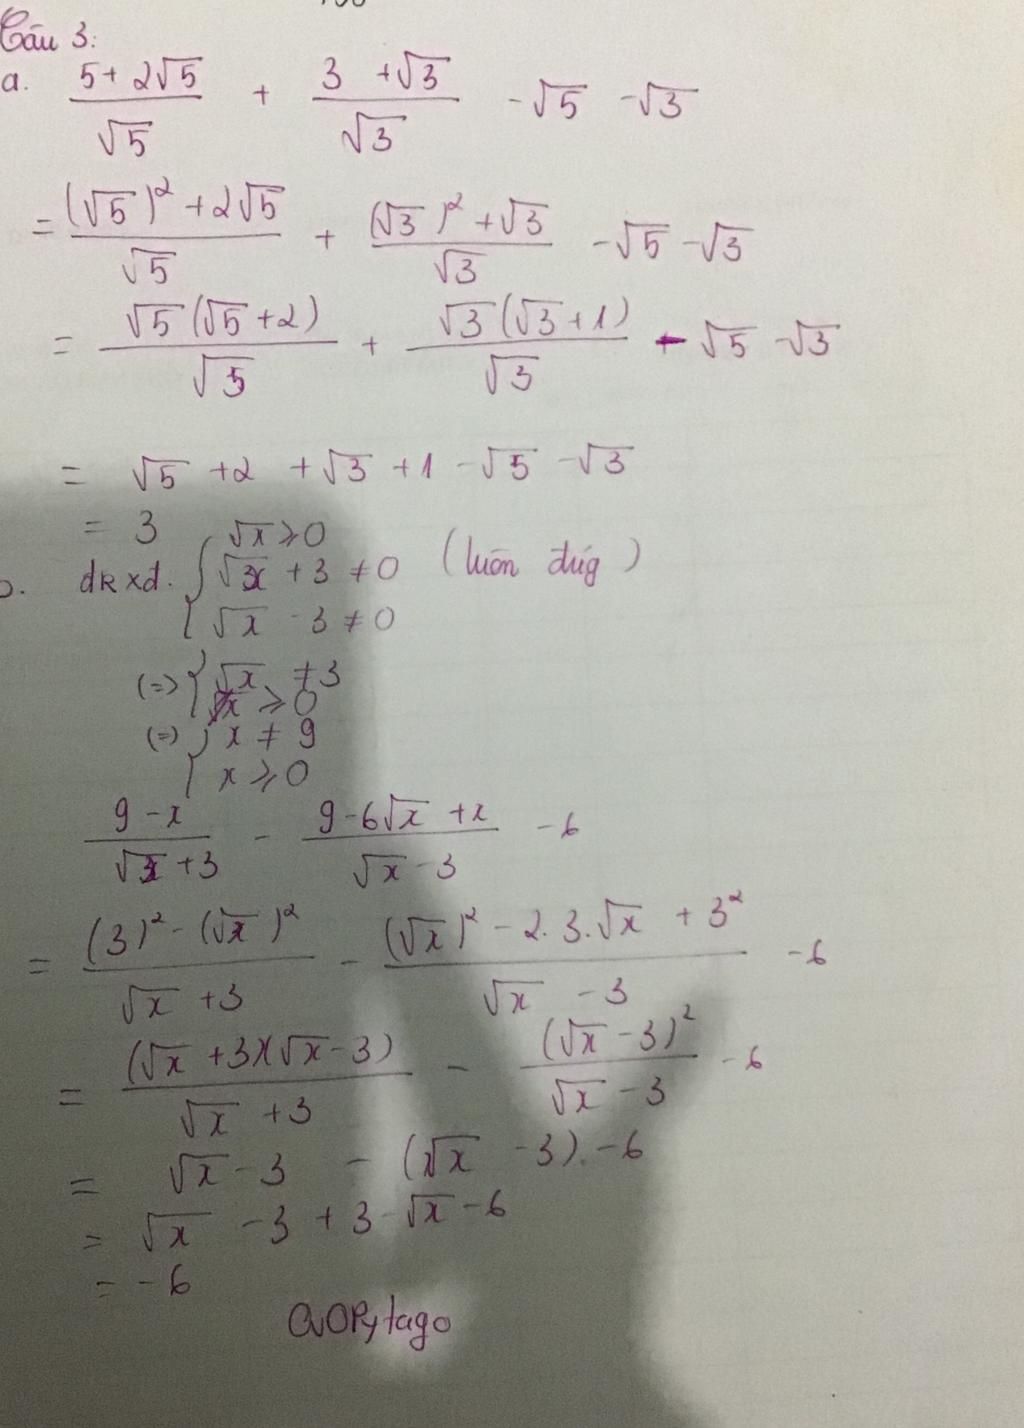 Câu 3:
a. (5 + 2√5)/√5 + (3 + √3)/√3 - √5 - √3
= ((√5)² + 2√5)/√5 + ((√3)² + √3)/√3 - √5 - √3
= √5(√5 + 2)/√5 + √3(√3 + 1)/√3 - √5 - √3
= √5 + 2 + √3 + 1 - √5 - √3
= 3
b. đkxđ. { √x ≥ 0
√x + 3 ≠ 0 (luôn đúg)
√x - 3 ≠ 0
(=) { √x ≠ 3
x ≥ 0
(=) { x ≠ 9
x ≥ 0
(9 - x)/(√x + 3) - (9 - 6√x + x)/(√x - 3) - 6
= ((3)² - (√x)²)/(√x + 3) - ((√x)² - 2.3.√x + 3²)/(√x - 3) - 6
= (√x + 3)(√x - 3)/(√x + 3) - (√x - 3)²/(√x - 3) - 6
= √x - 3 - (√x - 3) - 6
= √x - 3 + 3 - √x - 6
= - 6
@VOPytago